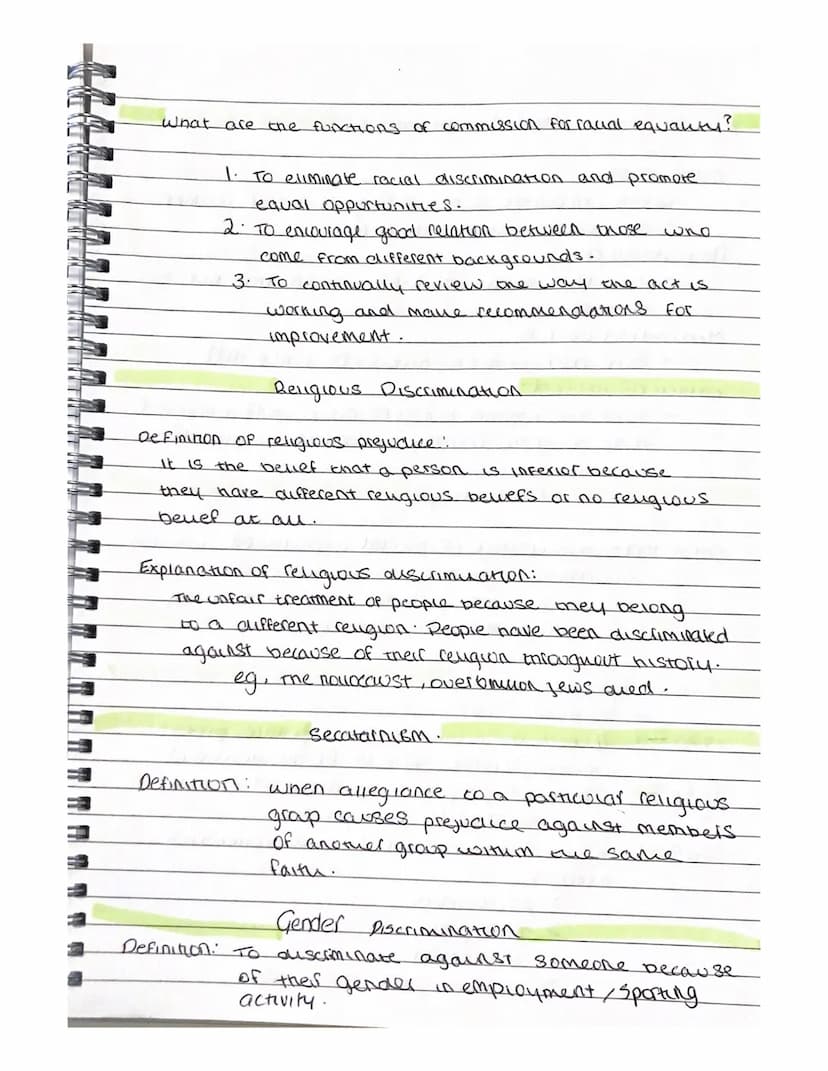 What are the functions of commission for racial equality?
1. To eliminate racial discrimination and promote
equal oppurtunities.
2. To encourage good relation between those who
come from different backgrounds.
3. To continually review the way the act is
working and make recommendations for
improvement.
Religious Discrimination
Definition of religious prejudice:
It is the belief that a person is inferior because
they have different religious beliefs or no religious
belief at all.
Explanation of religious discrimination:
The unfair treatment of people because they belong
to a different religion. People have been discriminated
against because of their religion throughout history.
eg, the holocaust, over 6 million jews died.
Secatarnism.
Definition: when allegiance to a particular religious
group causes prejudice against members
of another group within the same
faith.
Gender Discrimination
Definition: To discriminate against someone because
of their gender in employment / sporting
activity.